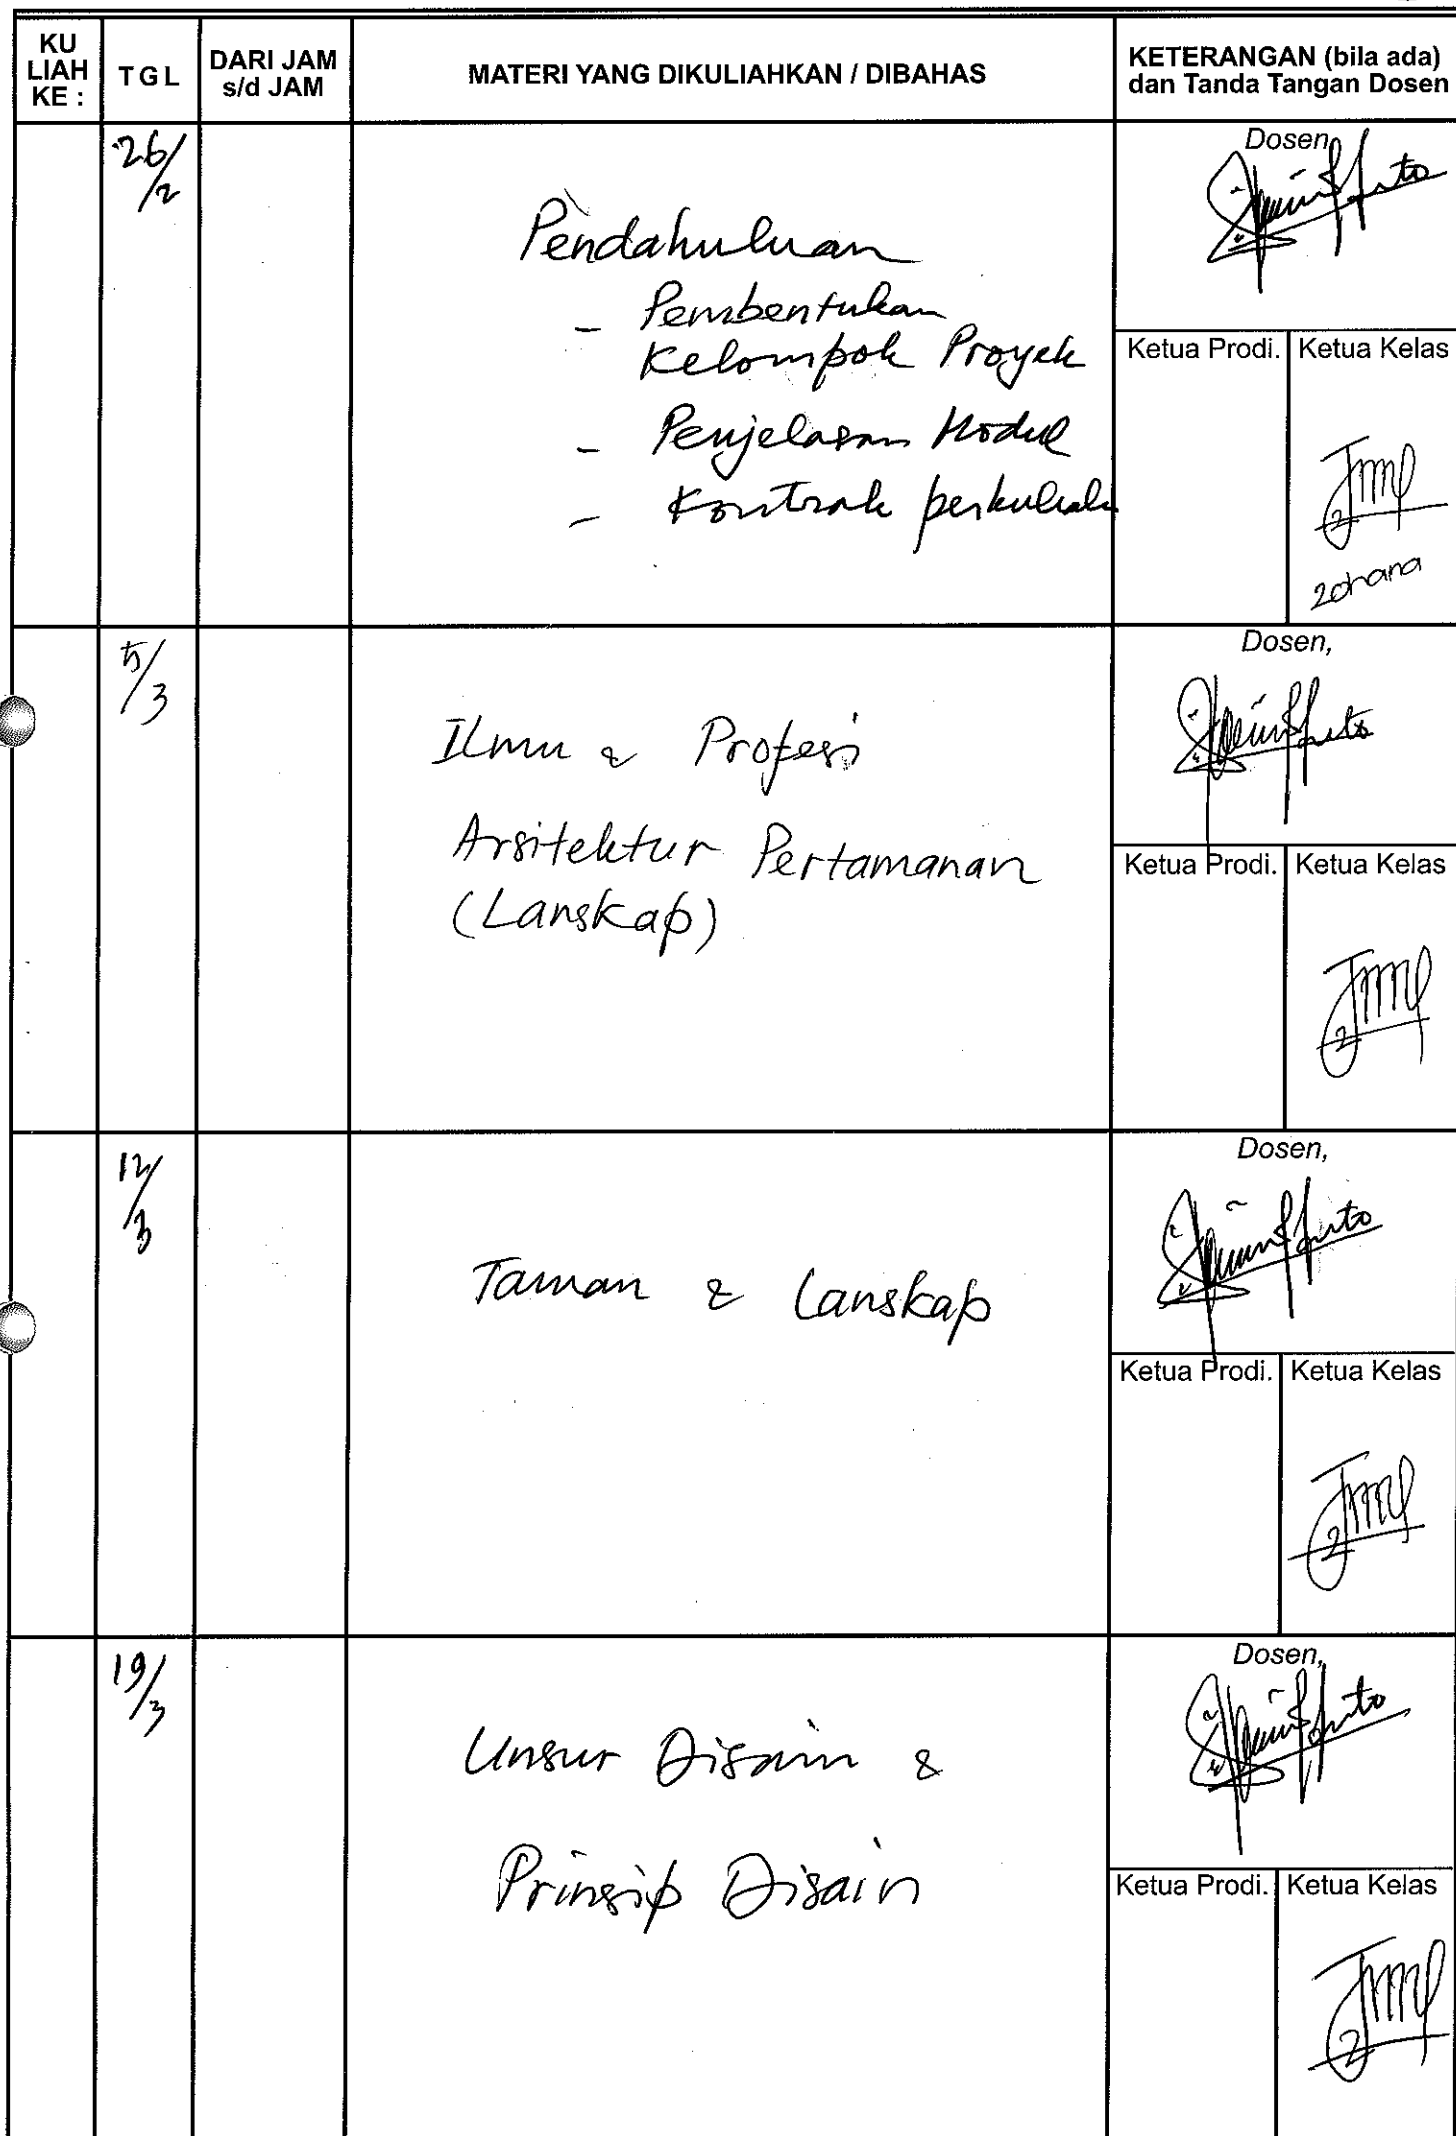 KU LIAH KE :
TGL
DARI JAM s/d JAM
MATERI YANG DIKULIAHKAN / DIBAHAS
KETERANGAN (bila ada) dan Tanda Tangan Dosen
26/2
Pendahuluan
- Pembentukan
Kelompok Proyek
- Penjelasan Modul
- Kontrak perkuliah
Dosen,
Ketua Prodi.
Ketua Kelas
5/3
Ilmu & Profesi
Arsitektur Pertamanan
(Lanskap)
Dosen,
Ketua Prodi.
Ketua Kelas
12/3
Taman & Lanskap
Dosen,
Ketua Prodi.
Ketua Kelas
19/3
Unsur Disain &
Prinsip Disain
Dosen,
Ketua Prodi.
Ketua Kelas